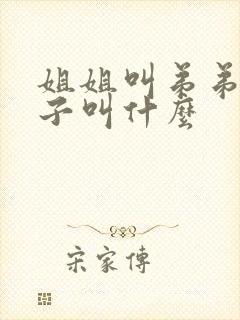 姐姐叫弟弟
子叫什麼
宋家傳